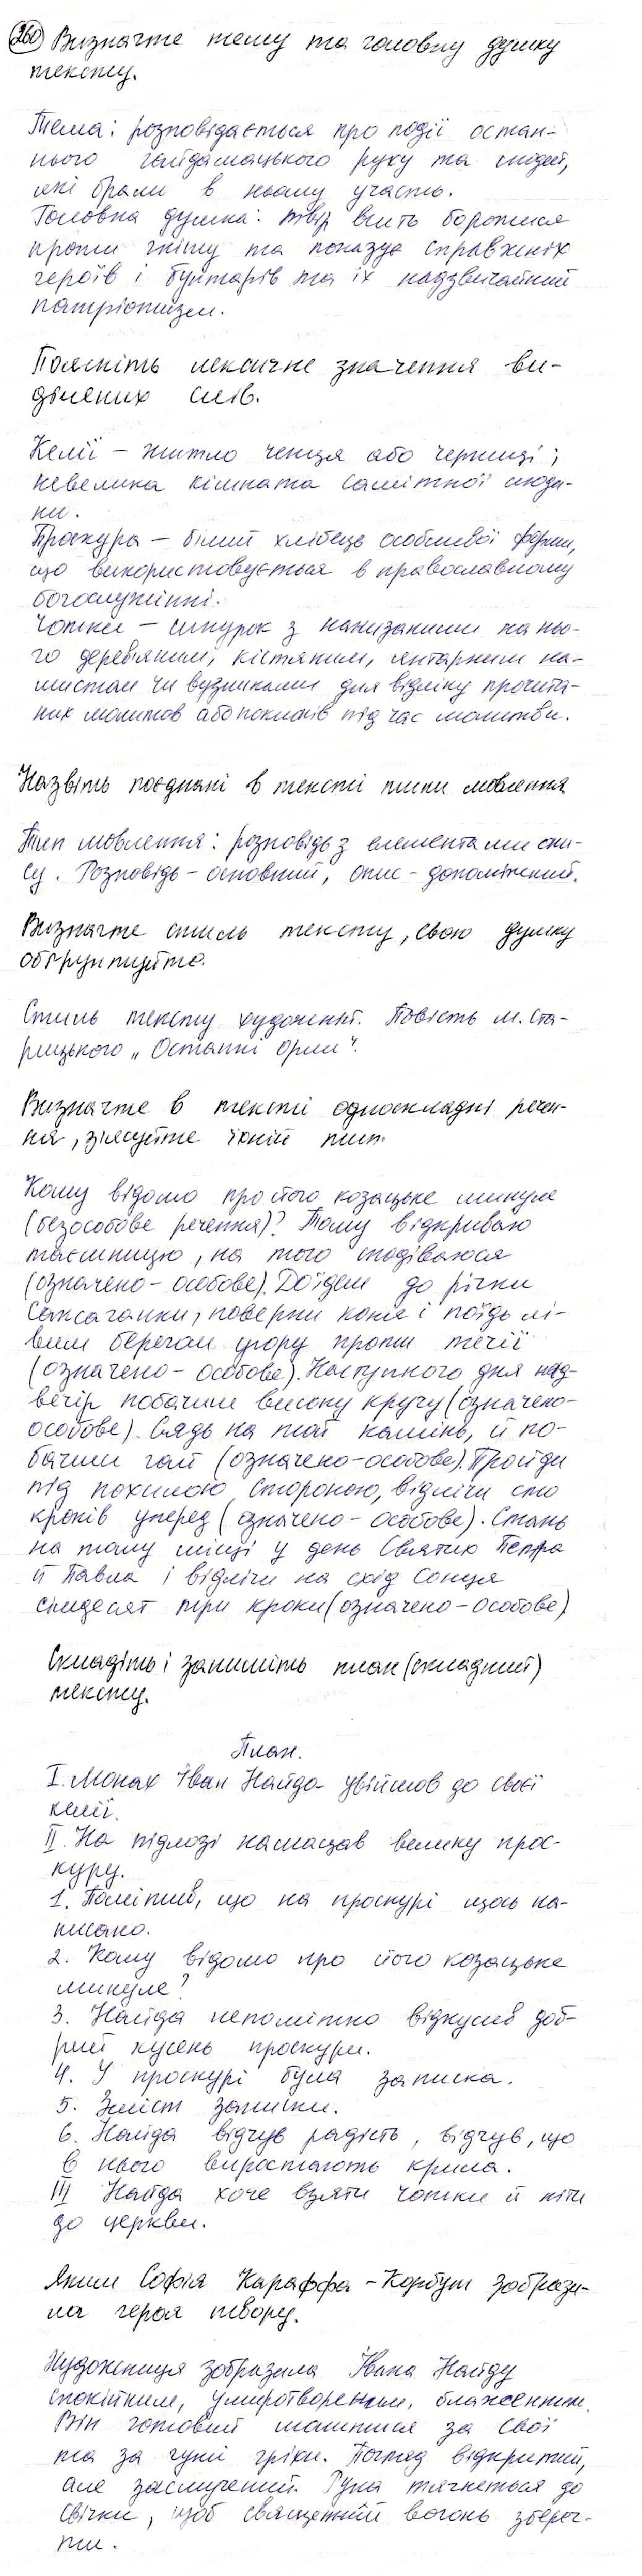 260 Визначте тему та головну думку
тексту.
Тема: розповідається про події остан-
нього гайдамацького руху та людей,
які брали в ньому участь.
Головна думка: твір вчить боротися
проти гніту та показує справжніх
героїв і бунтарів та їх надзвичайний
патріотизм.
Поясніть лексичне значення ви-
ділених слів.
Келії – житло ченця або черниці;
невелика кімната самітної люди-
ни.
Проскура – білий хлібець особливої форми,
що використовується в православному
богослужінні.
Чотки – шнурок з нанизаними на ньо-
го дерев'яним, кістяним, янтарним на-
мистом чи вузликами для відліку прочита-
них молитов або поклонів під час молитви.
Назвіть поєднані в тексті типи мовлення
Тип мовлення: розповідь з елементами опи-
су. Розповідь – основний, опис – допоміжний.
Визначте стиль тексту, свою думку
обґрунтуйте.
Стиль тексту художній. Повість М. Ста-
рицького „Останні орли".
Визначте в тексті односкладні речен-
ня, з'ясуйте їхній тип.
Кому відомо про його козацьке минуле
(безособове речення)? Тому відкриваю
таємницю, на того сподіваюся
(означено-особове). Доїдеш до річки
Саксаганки, поверни коня і поїдь лі-
вим берегом угору проти течії
(означено-особове). Наступного дня над-
вечір побачиш високу кручу (означено-
особове). Сядь на той камінь, й по-
бачиш гай (означено-особове). Пройди
під похилою стороною, відлічи сто
кроків уперед (означено-особове). Стань
на тому місці у день Святих Петра
й Павла і відлічи на схід Сонця
сімдесят три кроки (означено-особове)
Складіть і запишіть план (складний)
тексту.
План.
I. Монах Іван Найда увійшов до своєї
келії.
II. На підлозі намацав велику прос-
куру.
1. Помітив, що на проскурі щось на-
писано.
2. Кому відомо про його козацьке
минуле?
3. Найда непомітно відкусив доб-
рий кусень проскури.
4. У проскурі була записка.
5. Зміст записки.
6. Найда відчув радість, відчув, що
в нього виростають крила.
III Найда хоче взяти чотки й піти
до церкви.
Яким Софія Караффа-Корбут зобрази-
ла героя твору.
Художниця зобразила Івана Найду
спокійним, умиротвореним, блаженним.
Він готовий молитися за свої
та за чужі гріхи. Погляд відкритий,
але засмучений. Рука тягнеться до
свічки, щоб священний вогонь зберег-
ти.